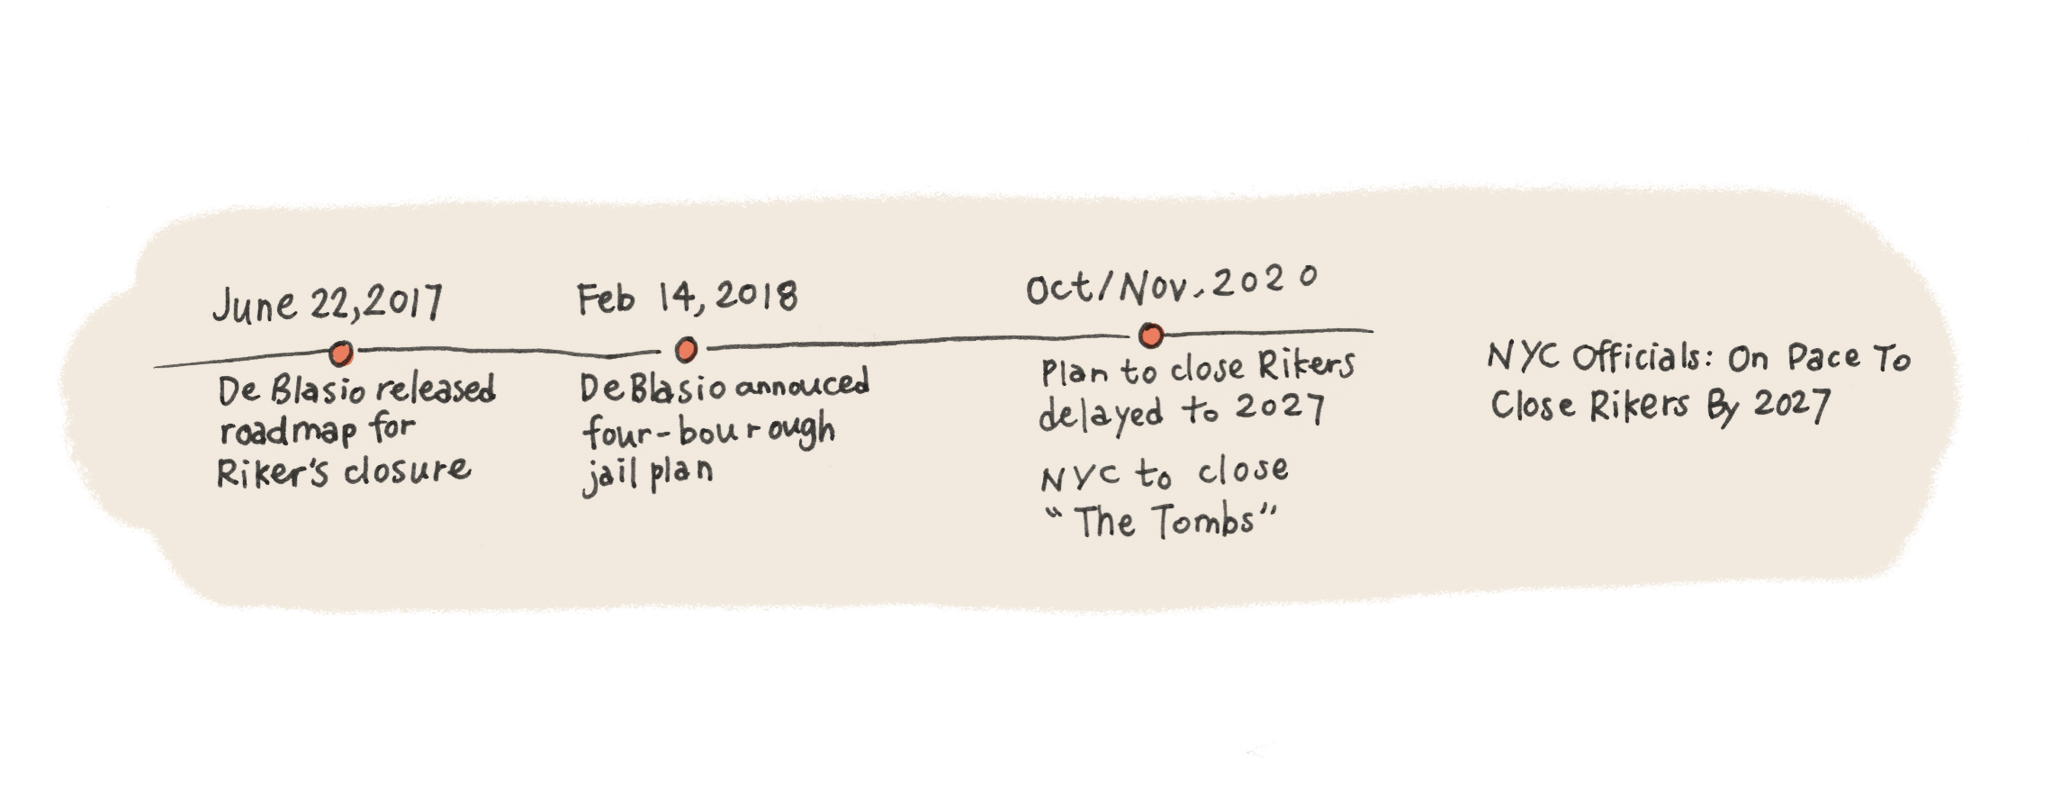 June 22, 2017
De Blasio released
roadmap for
Riker's closure
Feb 14, 2018
De Blasio annouced
four-bourough
jail plan
Oct/Nov. 2020
Plan to close Rikers
delayed to 2027
NYC to close
"The Tombs"
NYC Officials: On Pace To
Close Rikers By 2027